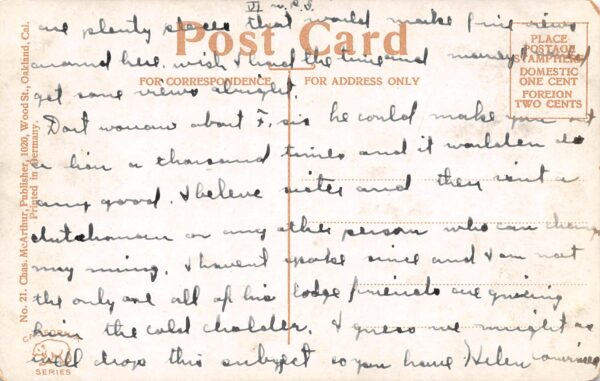 VI
are plenty places that would make fine views
around here. wish I had the time and money I could
get some views alright.
Dont woman about F. sis he could make you out
a liar a thousand times and it wouldent do
any good. I beleive sister and they isnt a
dutchman or any other person who can change
my ming. I havent spoke since and I am not
the only one all of his lodge friends are giveing
him the cold cholder. I guess we might as
well drop this subject so you have Helen convinced
Post Card
FOR CORRESPONDENCE
FOR ADDRESS ONLY
PLACE
POSTAGE
STAMP HERE
DOMESTIC
ONE CENT
FOREIGN
TWO CENTS
No. 21. Chas. McArthur, Publisher, 1020, Wood St., Oakland, Cal.
Printed in Germany.
SERIES